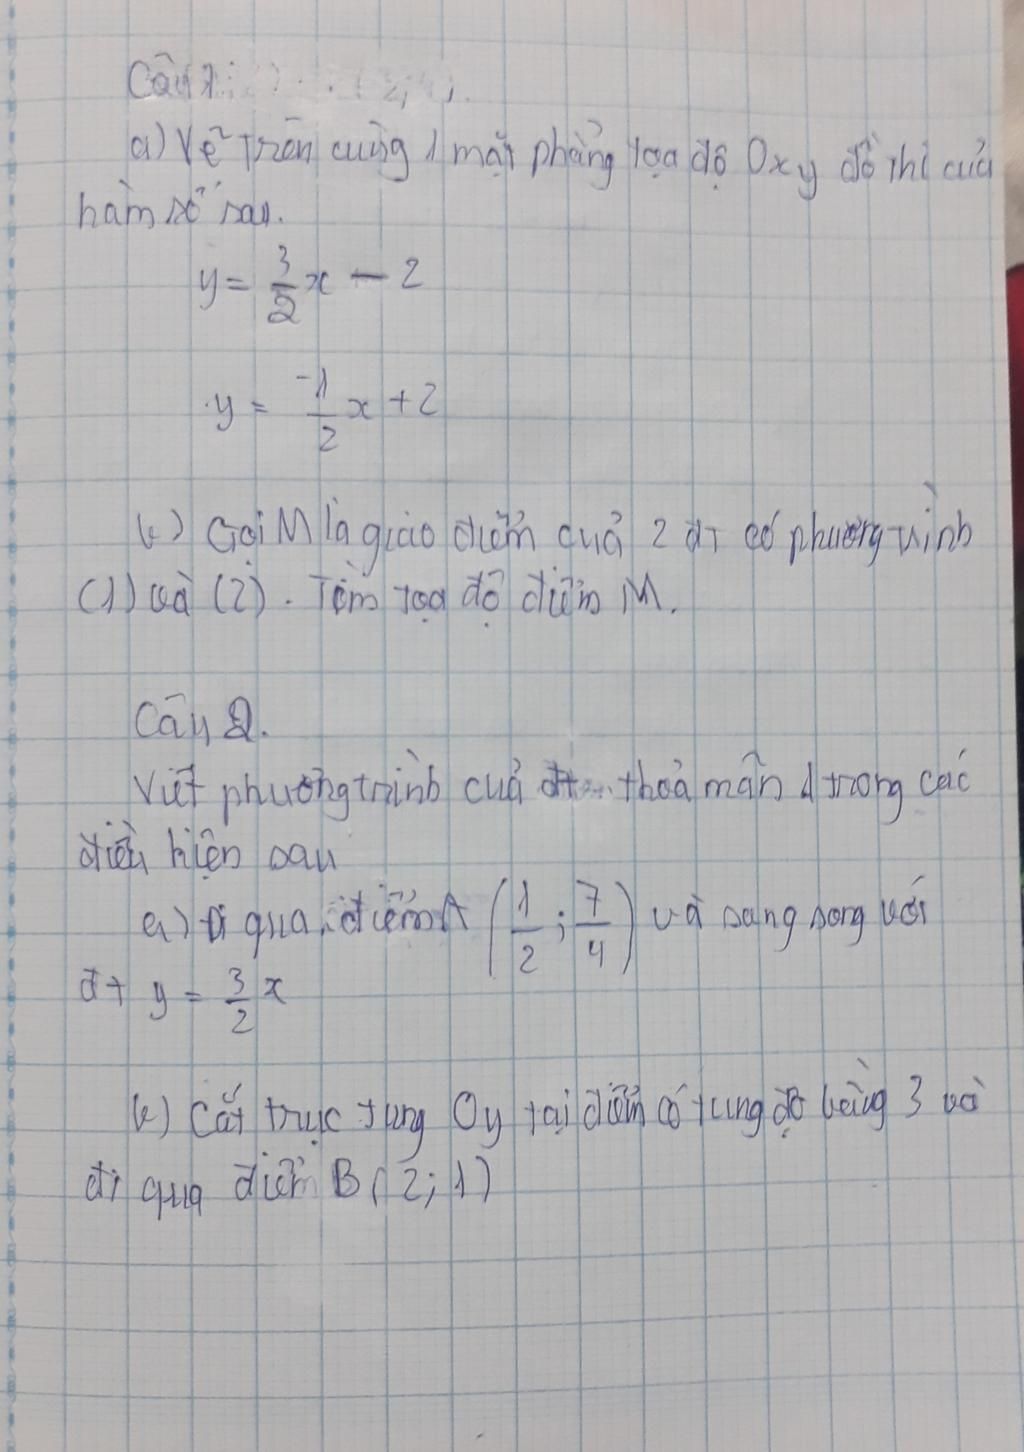 Câu 1:
a) Vẽ trên cùng 1 mặt phẳng tọa độ Oxy đồ thị của
hàm số sau.
y = 3/2 x - 2
y = -1/2 x + 2
b) Gọi M là giao điểm của 2 đt có phương trình
(1) và (2). Tìm tọa độ điểm M.
Câu 2.
Viết phương trình của đt thoả mãn 1 trong các
điều kiện sau
a) đi qua điểm A (1/2 ; 7/4) và song song với
đt y = 3/2 x
b) Cắt trục tung Oy tại điểm có tung độ bằng 3 và
đi qua điểm B (2; 1)